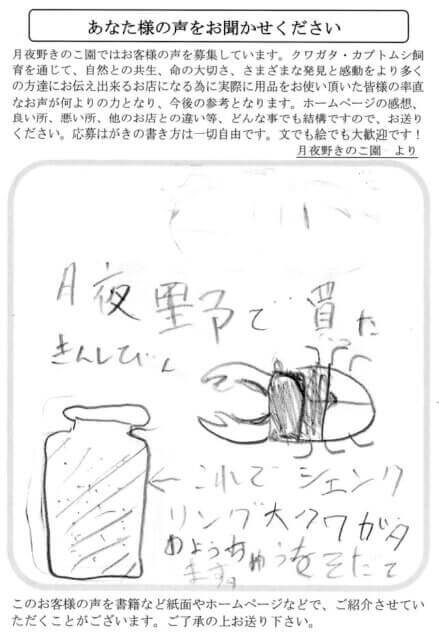 あなた様の声をお聞かせください
月夜野きのこ園ではお客様の声を募集しています。クワガタ・カブトムシ飼
育を通じて、自然との共生、命の大切さ、さまざまな発見と感動をより多く
の方達にお伝え出来るお店になる為に実際に用品をお使い頂いた皆様の率直
なお声が何よりの力となり、今後の参考となります。ホームページの感想、
良い所、悪い所、他のお店との違い等、どんな事でも結構ですので、お送り
ください。応募はがきの書き方は一切自由です。文でも絵でも大歓迎です！
月夜野きのこ園　より
月夜野で買た
きんしびん
←これでシェンク
リング大クワガタ
のようちゅうをそだて
ます。
このお客様の声を書籍など紙面やホームページなどで、ご紹介させてい
ただくことがございます。ご了承の上お送り下さい。